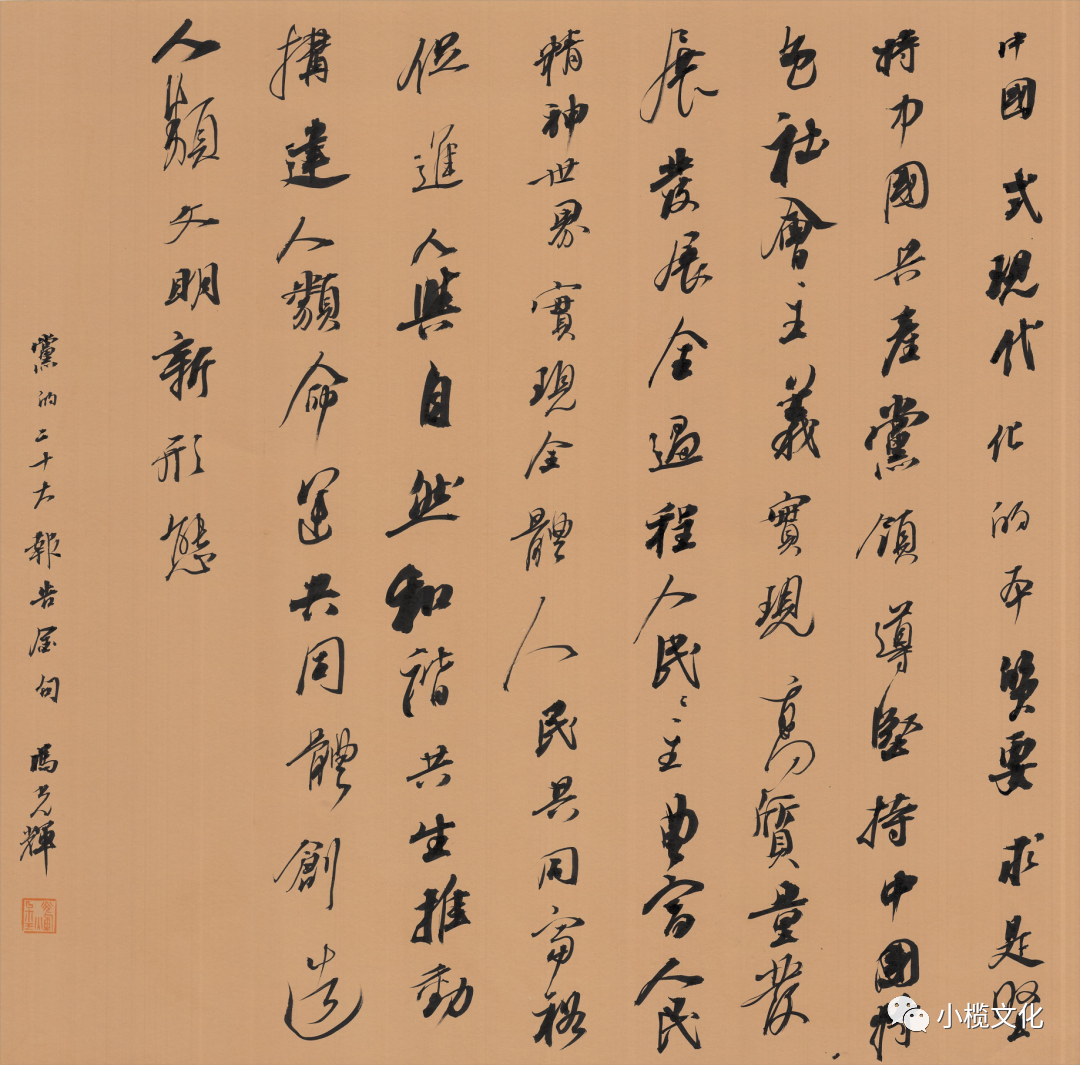 中國式現代化的本質要求是堅
持中國共產黨領導堅持中國特
色社會主義實現高質量發
展發展全過程人民〻主豐富人民
精神世界實現全體人民共同富裕
促進人與自然和諧共生推動
構建人類命運共同體創造
人類文明新形態
黨的二十大報告金句 馮光輝
小榄文化